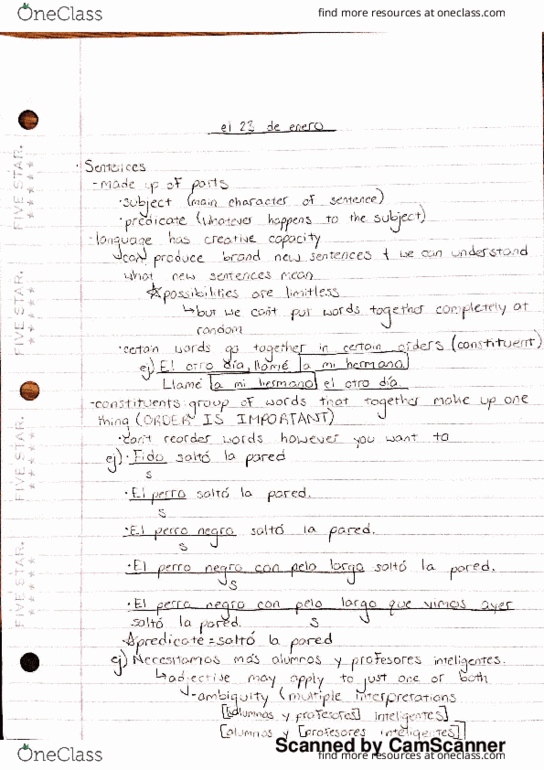 OneClass
find more resources at oneclass.com
el 23 de enero
FIVE STAR.
FIVE STAR.
FIVE STAR.
FIVE STAR.
· Sentences
- made up of parts
· subject (main character of sentence)
· predicate (whatever happens to the subject)
- language has creative capacity
↳ can produce brand new sentences & we can understand
what new sentences mean
☆ possibilities are limitless
↳ but we can't put words together completely at
random
· certain words go together in certain orders (constituent)
ej) El otro día, llamé [a mi hermana]
Llamé [a mi hermana] el otro día.
- constituents group of words that together make up one
thing (ORDER IS IMPORTANT)
· don't reorder words however you want to
ej) · Fido saltó la pared
S
· El perro saltó la pared.
S
· El perro negro saltó la pared.
S
· El perro negro con pelo largo saltó la pared.
S
· El perro negro con pelo largo que vimos ayer
saltó la pared. S
☆ predicate = saltó la pared
ej) Necesitamos más alumnos y profesores inteligentes.
↳ adjective may apply to just one or both
↳ ambiguity (multiple interpretations
[[alumnos y profesores] inteligentes]
[alumnos y [profesores inteligentes]]
Scanned by CamScanner
OneClass
find more resources at oneclass.com